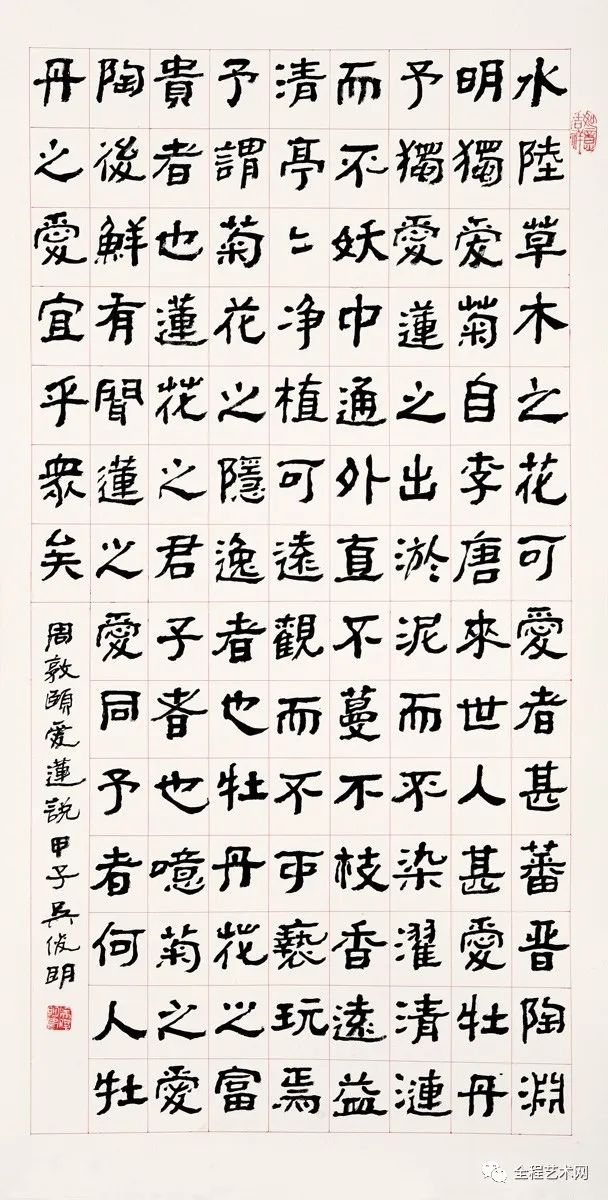 水陸草木之花可愛者甚蕃晋陶淵
明獨爱菊自李唐來世人甚愛牡丹
予獨愛蓮之出淤泥而不染濯清漣
而不妖中通外直不蔓不枝香遠益
清亭〻净植可遠觀而不可褻玩焉
予謂菊花之隱逸者也牡丹花之富
貴者也蓮花之君子者也噫菊之愛
陶後鮮有聞蓮之愛同予者何人牡
丹之愛宜乎衆矣
周敦頤愛蓮説 甲子吴俊明
全程艺术网